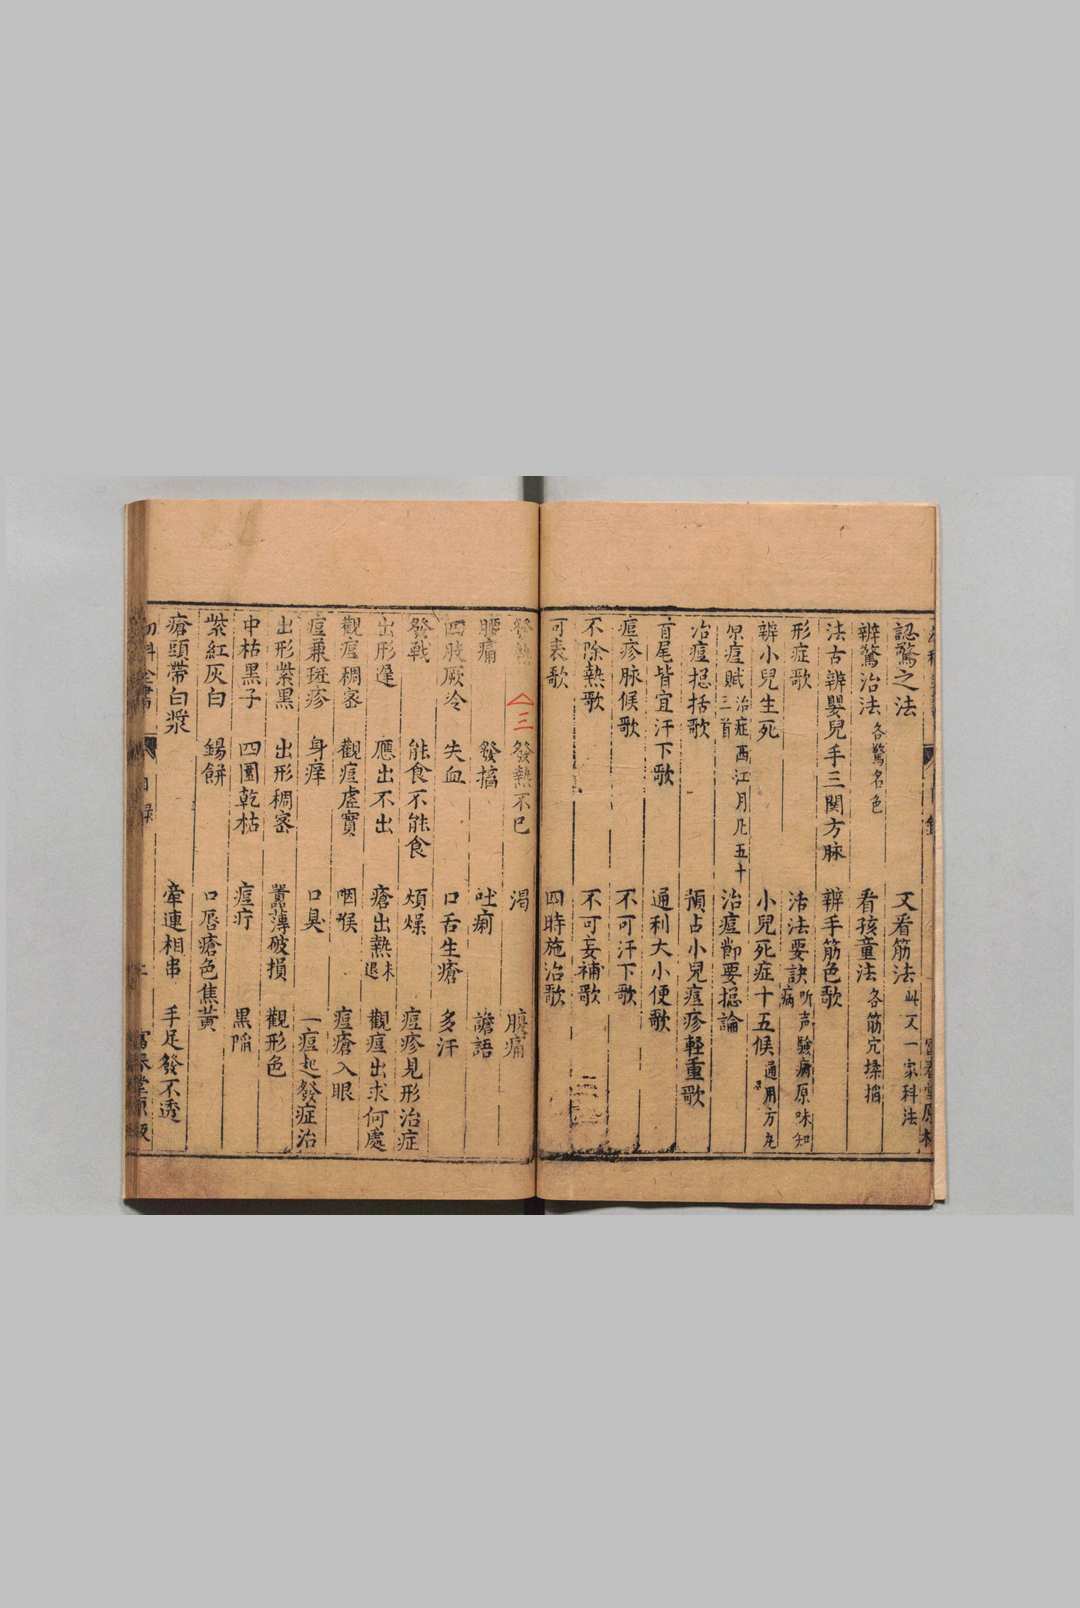 認驚之法 又看筋法 此又一家科法
辨驚治法 各驚名色 看孩童法 各筋穴揉掐
法古辨嬰兒手三関方脉 辨手筋色歌
形症歌 活法要訣 听声驗病原味知病
辨小兒生死 小兒死症十五候 通用方
原痘賦三首 治症西江月凡五十 治痘節要捴論
治痘捴括歌 預占小兒痘疹輕重歌
首尾皆宜汗下歌 通利大小便歌
痘疹脉候歌 不可汗下歌
不除熱歌 不可妄補歌
可表歌 四時施治歌
發熱 三 發熱不已 渴 腹痛
腰痛 發搐 吐痢 譫語
四肢厥冷 失血 口舌生瘡 多汗
發戰 能食不能食 煩燥 痘疹見形治症
出形遲 應出不出 瘡出熱未退 觀痘出求何處
觀痘稠密 觀痘虛實 咽喉 痘瘡入眼
痘兼斑疹 身痒 口臭 一痘起發症治
出形紫黑 出形稠密 薄破損 觀形色
中枯黑子 四圍乾枯 痘疔 黑陷
紫紅灰白 錫餅 口唇瘡色焦黃
瘡頭帶白漿 牽連相串 手足發不透
全書 目錄 堂原板